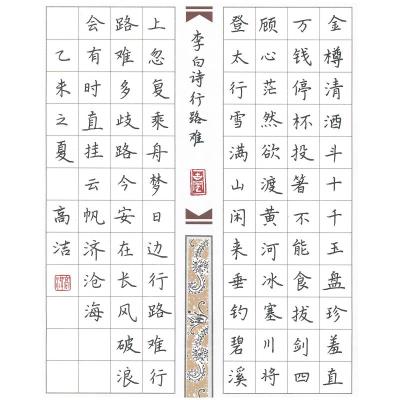 金樽清酒斗十千玉盘珍羞直
万钱停杯投箸不能食拔剑四
顾心茫然欲渡黄河冰塞川将
登太行雪满山闲来垂钓碧溪
李白诗行路难
上忽复乘舟梦日边行路难行
路难多歧路今安在长风破浪
会有时直挂云帆济沧海
乙未之夏 高洁